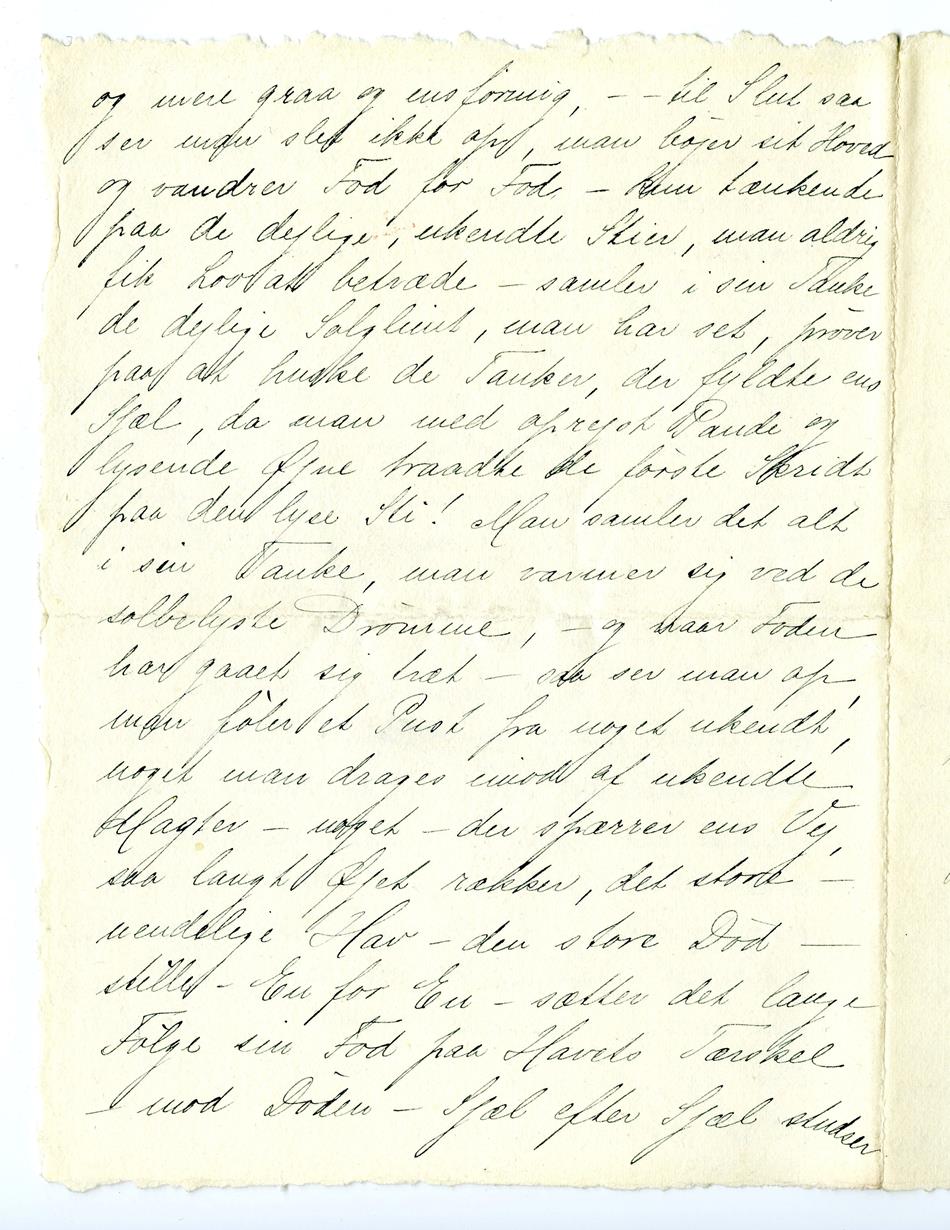 og mere graa og ensformig, - - til Slut saa
ser man slet ikke op, man bøjer sit Hoved
og vandrer Fod for Fod - kun tænkende
paa de dejlige, ukendte Stier, man aldrig
fik Lov at betræde - samler i sin Tanke
de dejlige Solglimt, man har set, prøver
paa at huske de Tanker, der fyldte ens
Sjæl, da man med oprejst Pande og
lysende Øjne traadte de første Skridt
paa den lyse Sti! Man samler det alt
i sin Tanke, man varmer sig ved de
solbelyste Drømme, - og naar Foden
har gaaet sig træt - saa ser man op,
man føler et Pust fra noget ukendt,
noget man drages imod af ukendte
Magter - noget - der spærrer ens Vej,
saa langt Øjet rækker, det store -
uendelige Hav - den store Død -
stille - En for En - sætter det lange
Følge sin Fod paa Havets Tærskel
- mod Døden - Sjæl efter Sjæl studser